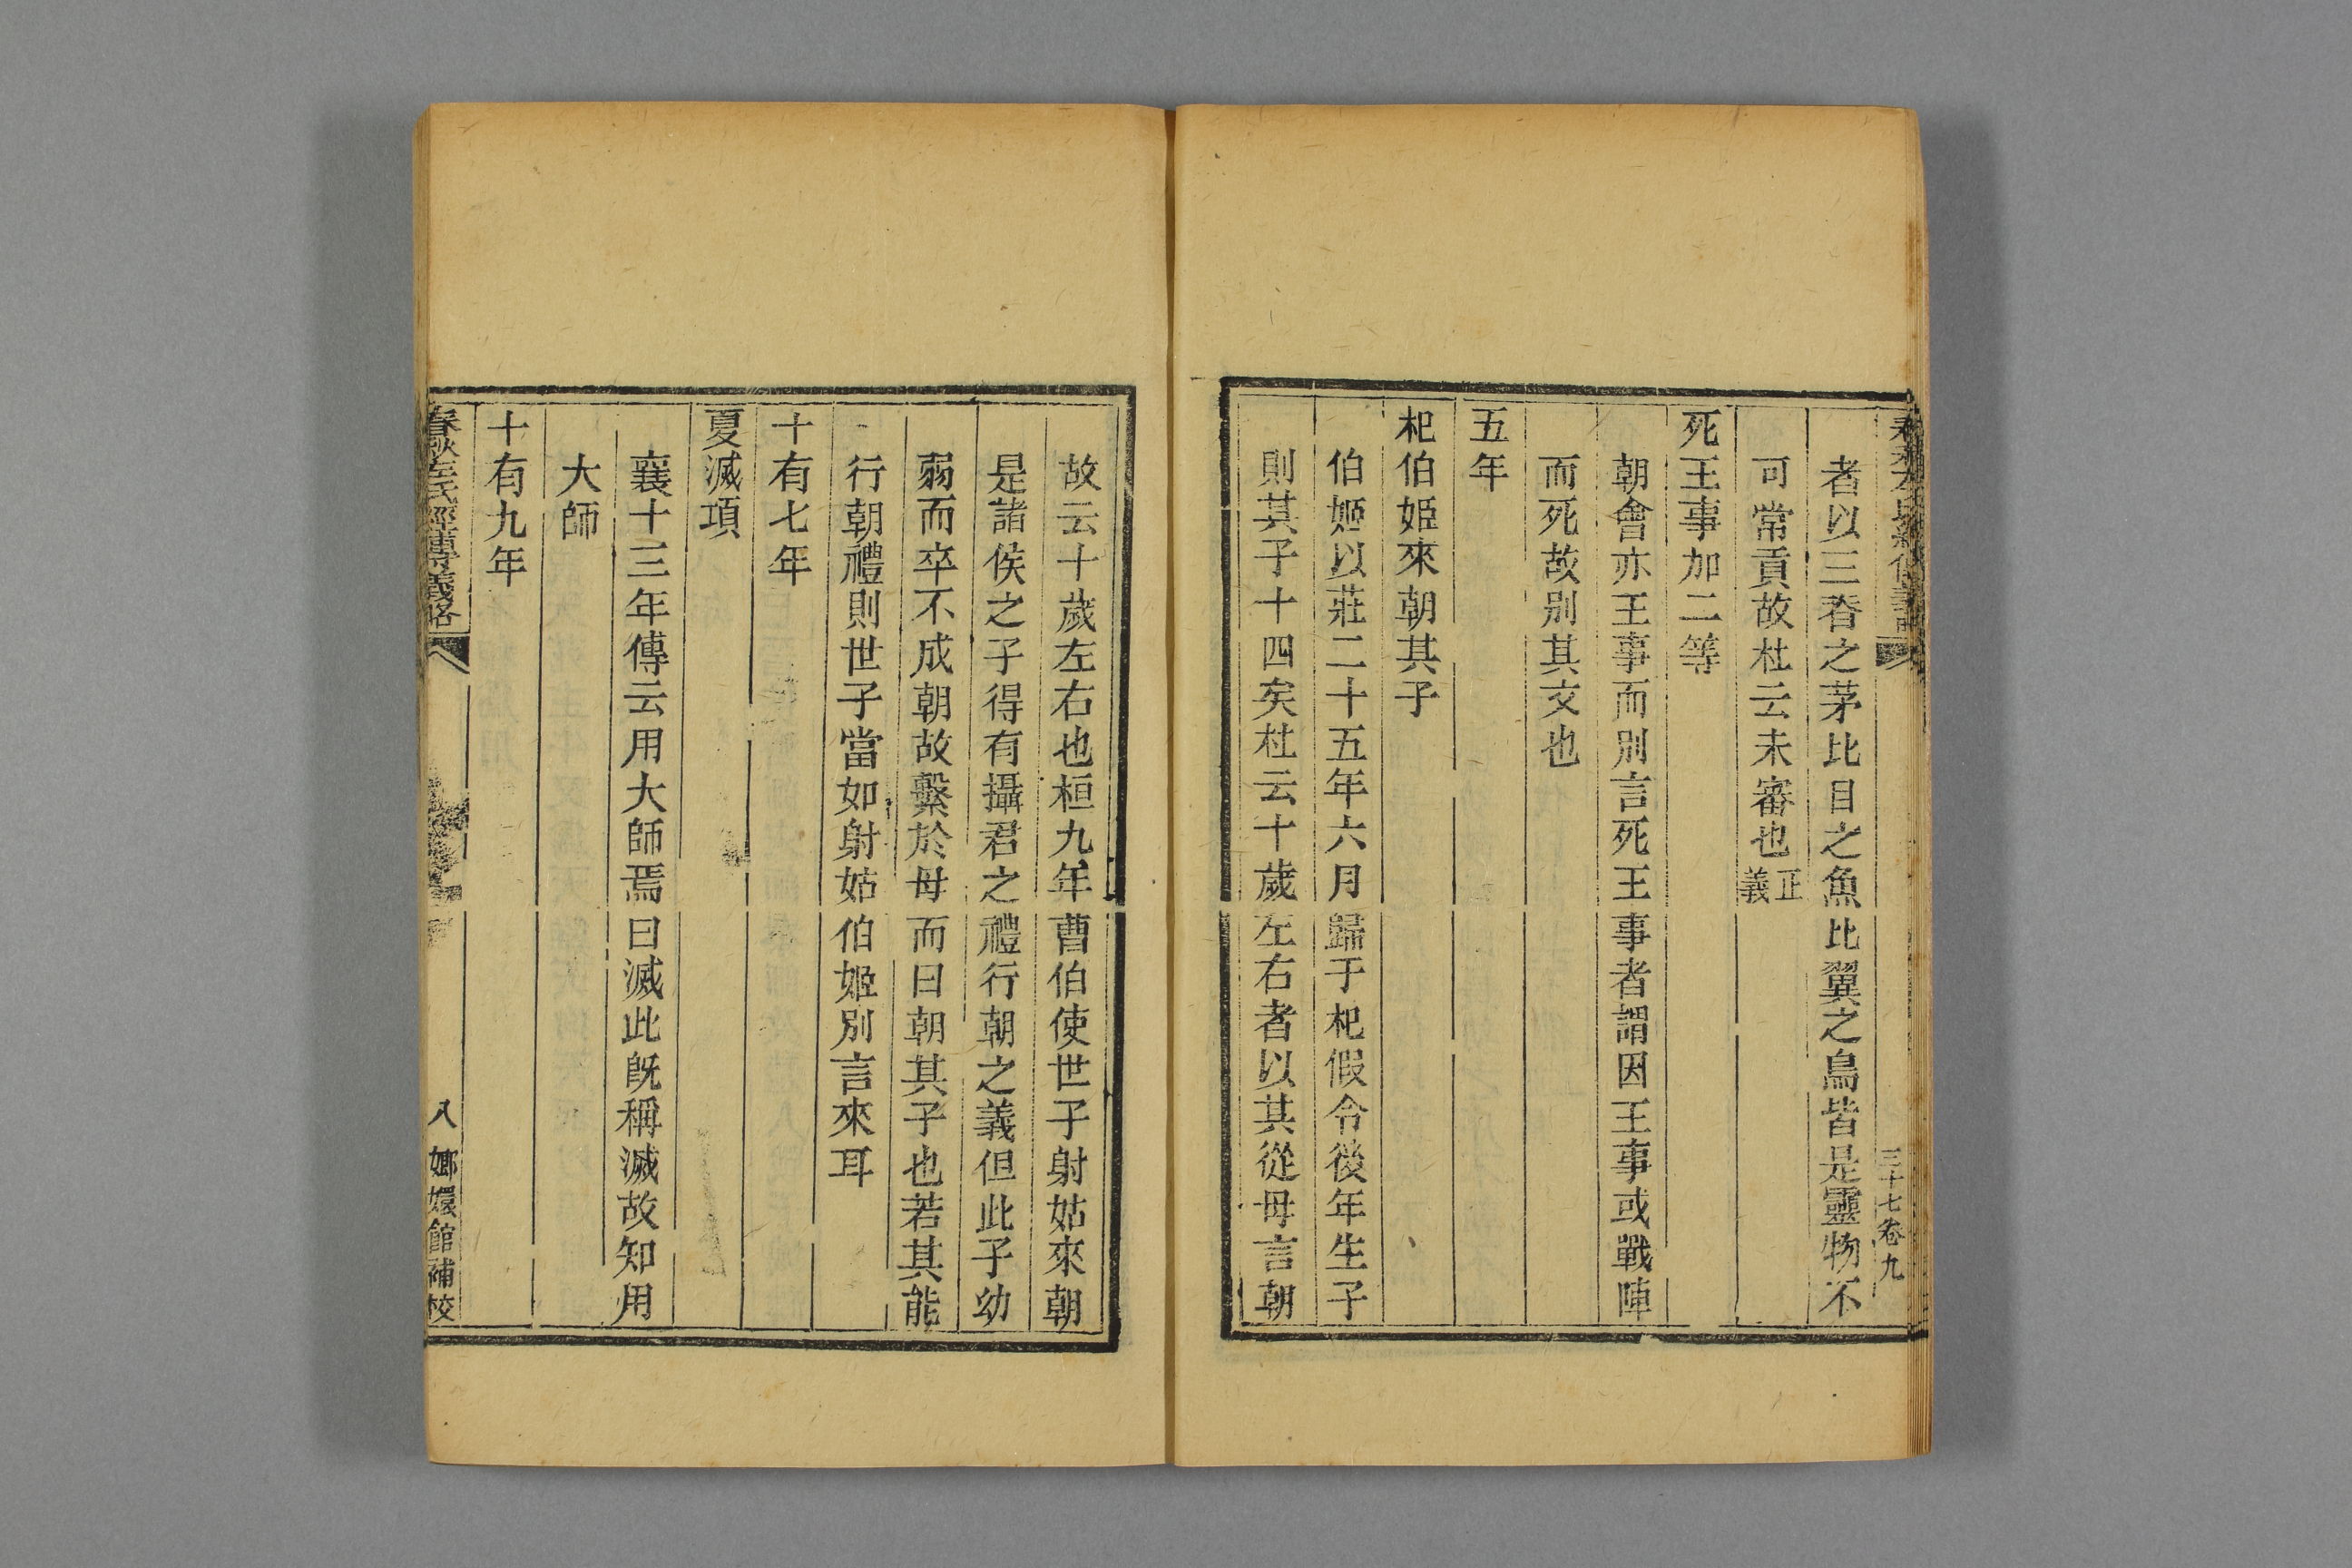 三十七卷九
者以三脊之茅比目之魚比翼之鳥皆是靈物不
可常貢故杜云未審也正義
死王事加二等
朝會亦王事而別言死王事者謂因王事或戰陣
而死故別其文也
五年
杞伯姬來朝其子
伯姬以莊二十五年六月歸于杞假令後年生子
則其子十四矣杜云十歲左右者以其從母言朝
故云十歲左右也桓九年曹伯使世子射姑來朝
是諸侯之子得有攝君之禮行朝之義但此子幼
弱而卒不成朝故繫於母而曰朝其子也若其能
行朝禮則世子當如射姑伯姬別言來耳
十有七年
夏滅項
襄十三年傳云用大師焉曰滅此旣稱滅故知用
大師
十有九年
春秋左氏經傳義略 八 嫏嬛館補校